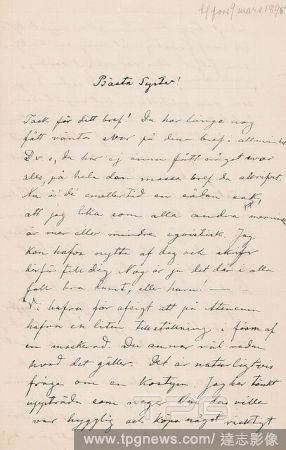 mars 1896
Bästa Syster!
Tack för ditt bref! Du har länge nog
fått vänta svar på dina bref.
D.v.s. du har ej ännu fått något svar
alls, på hela den massa bref du
Nu är då emellertid en sådan sak
att jag lika som alla andra
är mer eller mindre egoistisk. Jag
kan hafva nytta af dig och skrifver
därför till dig. Nog är ju det dar i alla
fall bra dumt, eller hur! —
Vi hafva för afsigt att på Ateneum
hafva en liten tillställning i form af
en maskerad. Du anar väl redan
hvad det gäller. Det är naturligtvis
fråga om en kostym. Jag har tänkt
uppträda som neger. Om du ville
var hygglig och köpa något riktigt
TPG
www.tpgnews.com / 達志影像